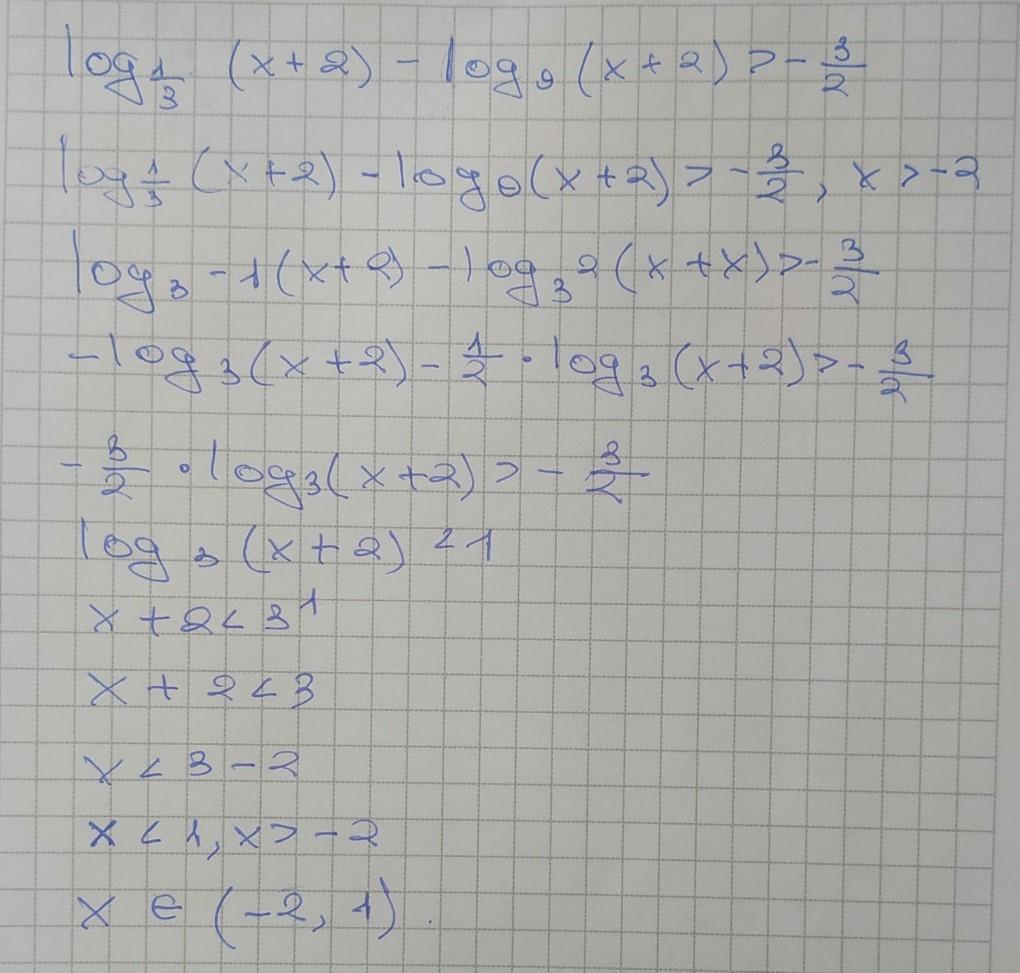 log_{1/3} (x+2) - log_9 (x+2) > - 3/2
log_{1/3} (x+2) - log_9 (x+2) > - 3/2, x > -2
log_3 -1 (x+2) - log_3 2 (x+x) > - 3/2
- log_3 (x+2) - 1/2 · log_3 (x+2) > - 3/2
- 3/2 · log_3 (x+2) > - 3/2
log_3 (x+2) < 1
x + 2 < 3^1
x + 2 < 3
x < 3 - 2
x < 1, x > -2
x ∈ (-2, 1).